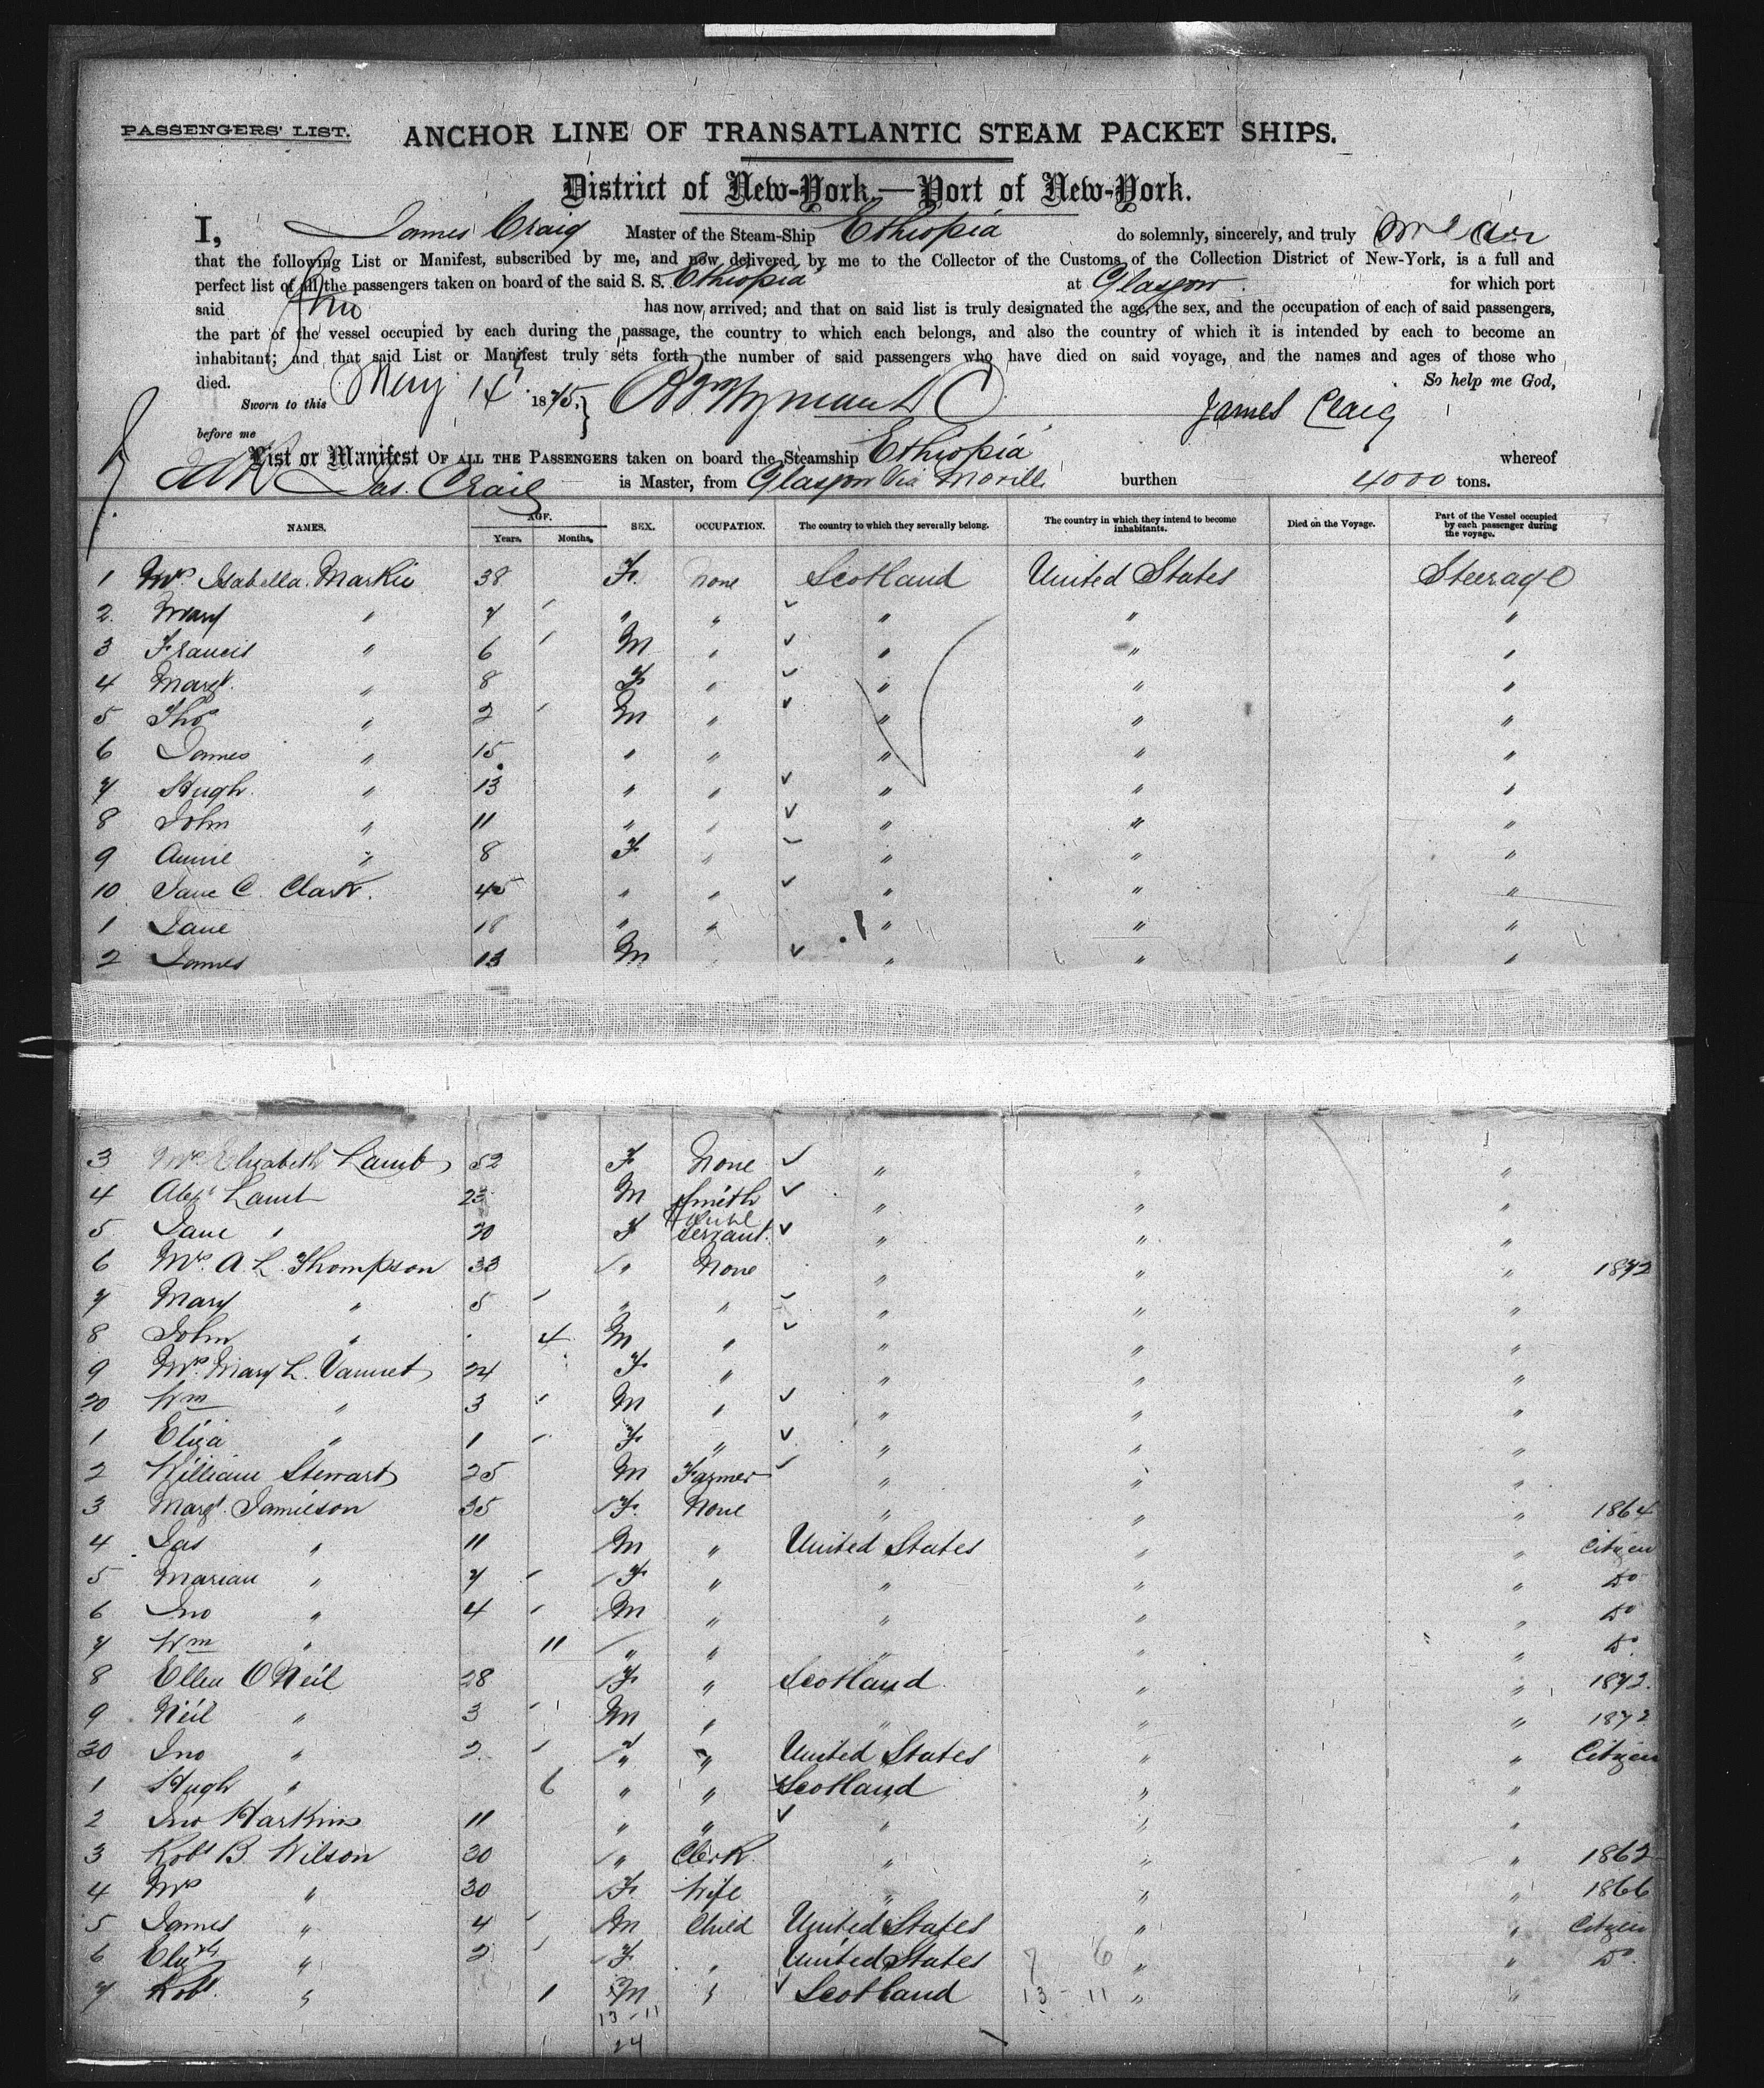 PASSENGERS' LIST.
ANCHOR LINE OF TRANSATLANTIC STEAM PACKET SHIPS.
District of New-York.—Port of New-York.
I, James Craig Master of the Steam-Ship Ethiopia do solemnly, sincerely, and truly
that the following List or Manifest, subscribed by me, and now delivered by me to the Collector of the Customs of the Collection District of New-York, is a full and
perfect list of all the passengers taken on board of the said S. S. Ethiopia at Glasgow for which port
said has now arrived; and that on said list is truly designated the age, the sex, and the occupation of each of said passengers,
the part of the vessel occupied by each during the passage, the country to which each belongs, and also the country of which it is intended by each to become an
inhabitant; and that said List or Manifest truly sets forth the number of said passengers who have died on said voyage, and the names and ages of those who
died. So help me God,
Sworn to this May 14 1875 James Craig
before me
List or Manifest OF ALL THE PASSENGERS taken on board the Steamship Ethiopia whereof
Jas. Craig is Master, from Glasgow Via Moville burthen 4000 tons.
NAMES. AGE. Years. Months. SEX. OCCUPATION. The country to which they severally belong. The country in which they intend to become inhabitants. Died on the Voyage. Part of the Vessel occupied by each passenger during the voyage.
1 Mrs Isabella Markie 38 F. None Scotland United States Steerage
2. Mary " 7 " " " " "
3 Francis " 6 M " " " "
4 Margt. " 8 F " " " "
5 Thos " 2 M " " " "
6 James " 15 " " " " "
7 Hugh " 13 " " " " "
8 John " 11 " " " " "
9 Annie " 8 F " " " "
10 Jane C. Clark. 45 " " " " "
1 Jane 18 " " " " "
2 James 13 M " " " "
3 Mrs Elizabeth Lamb 52 F None " " "
4 Alexr Lamb 23 M Smith " " "
5 Jane " 20 F Servant " " "
6 Mrs. A. L. Thompson 33 " None " " " 1872
7 Mary " 5 " " " " "
8 John " 4 M " " " "
9 Mrs Mary L. Vannet 24 F " " " "
20 Wm " 3 M " " " "
1 Eliza " 1 F " " " "
2 William Stewart 25 M Farmer " " "
3 Margt. Jamieson 35 F. None " " " 1864
4 Jas " 11 M " United States " " Citizen
5 Marian " 7 F " " " " Do
6 Jno " 4 M " " " " Do
7 Wm " 11 " " " " " Do
8 Ellen O'Neil 28 F " Scotland " " 1872.
9 Neil " 3 M " " " " 1872
30 Jno " 2 " " United States " " Citizen
1 Hugh " 6 " " Scotland " "
2 Jno Harkins 11 " " " " "
3 Robt B. Wilson 30 " Clerk " " " 1862
4 Mrs " 30 F. Wife " " " 1866
5 James " 4 M Child United States " " Citizen
6 Elizth " 2 F " United States 7 6 " " Do
7 Robt. " 1 M " Scotland 13 - 11 " "
13 - 11
24